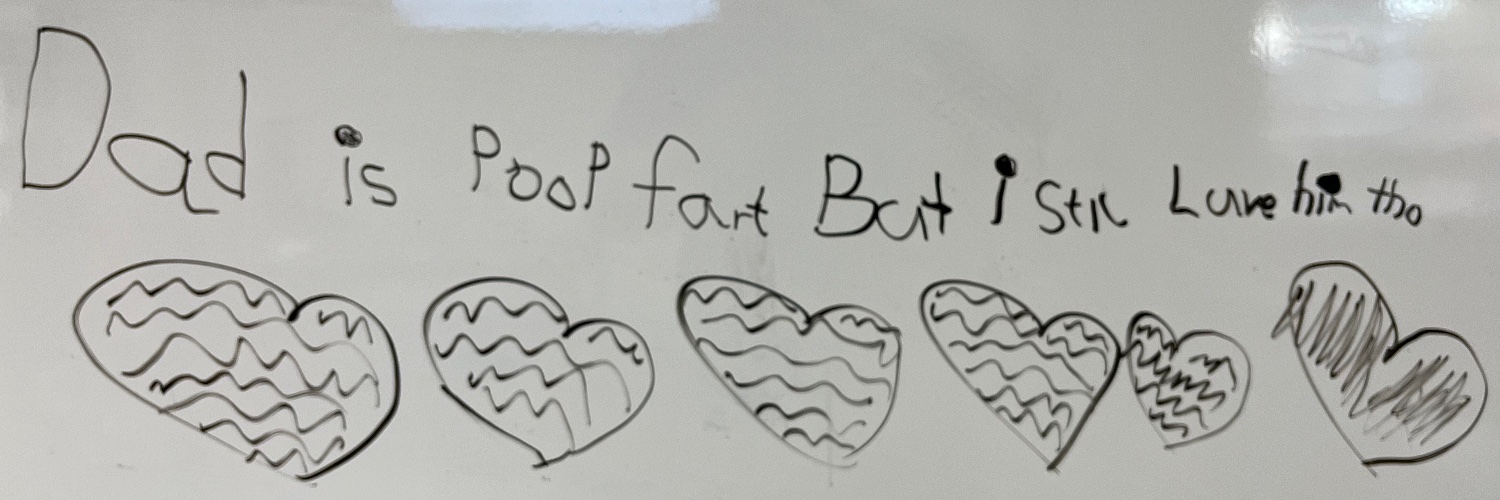 Dad is PooP fart But i stil Love him tho